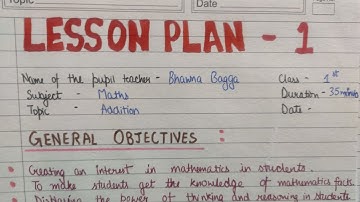 Topic
Date
LESSON PLAN - 1
Name of the pupil teacher - Bhawna Bagga Class - 1st
Subject - Maths Duration - 35 minutes
Topic - Addition Date -
GENERAL OBJECTIVES :
• Creating an interest in mathematics in students.
• To make students get the knowledge of mathematics facts
• the power of thinking and reasoning in students